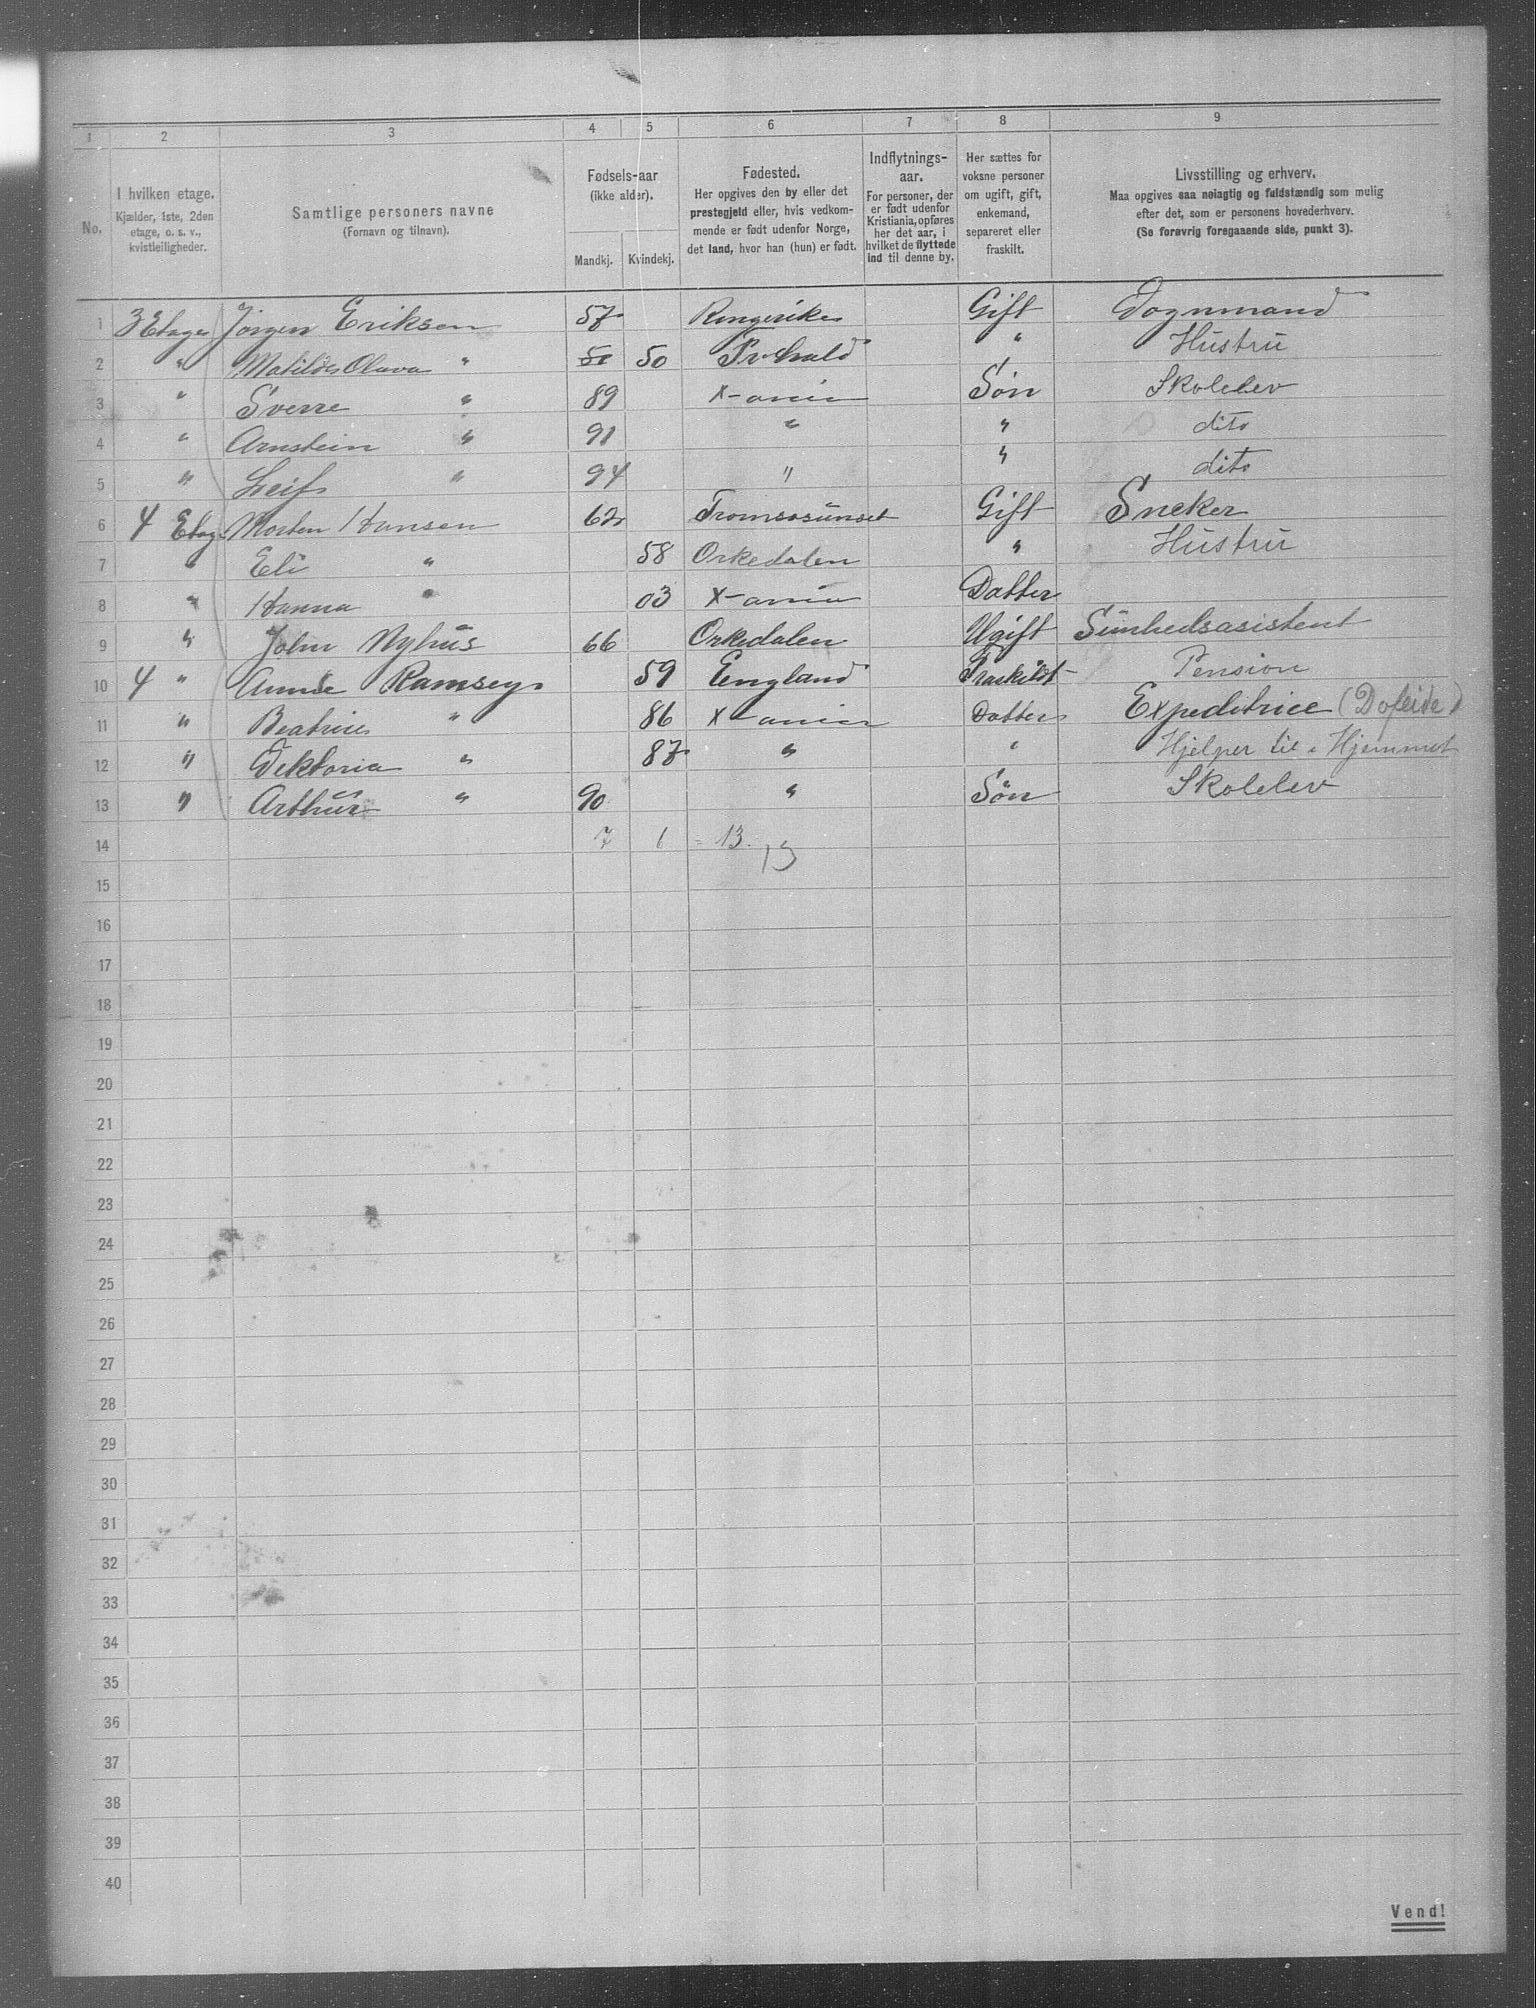 1 2 3 4 5 6 7 8 9
No.
I hvilken etage.
Kjælder, 1ste, 2den
etage, o. s. v.,
kvistleiligheder.
Samtlige personers navne
(Fornavn og tilnavn).
Fødsels-aar
(ikke alder).
Mandkj. Kvindekj.
Fødested.
Her opgives den by eller det
prestegjeld eller, hvis vedkom-
mende er født udenfor Norge,
det land, hvor han (hun) er født.
Indflytnings-
aar.
For personer, der
er født udenfor
Kristiania, opføres
her det aar, i
hvilket de flyttede
ind til denne by.
Her sættes for
voksne personer
om ugift, gift,
enkemand,
separeret eller
fraskilt.
Livsstilling og erhverv.
Maa opgives saa nøiagtig og fuldstændig som mulig
efter det, som er personens hovederhverv.
(Se forøvrig foregaaende side, punkt 3).
1 3 Etage Jørgen Eriksen 57 Ringerike Gift Vognmand
2 " Matilde Olava " 50 50 Frhald " Hustru
3 " Sverre " 89 X-ania Søn Skolelev
4 " Arnstein " 91 " " dito
5 " Leif " 94 " " dito
6 4 Etag Morten Hansen 62 Tromsøsundet Gift Sneker
7 " Eli " 58 Orkedalen " Hustru
8 " Hanna " 03 X-ania Datter
9 " John Nyhus 66 Orkedalen Ugift Sunhedsasistent
10 4 " Annie Ramsey 59 England Fraskildt Pension
11 " Beatrice " 86 X-ania Datter Expeditrice
12 " Viktoria " 87 " " Hjelper til i Hjemmet
13 " Arthur " 90 " Søn Skolelev
14 7 6 = 13. 13
15
16
17
18
19
20
21
22
23
24
25
26
27
28
29
30
31
32
33
34
35
36
37
38
39
40
Vend!